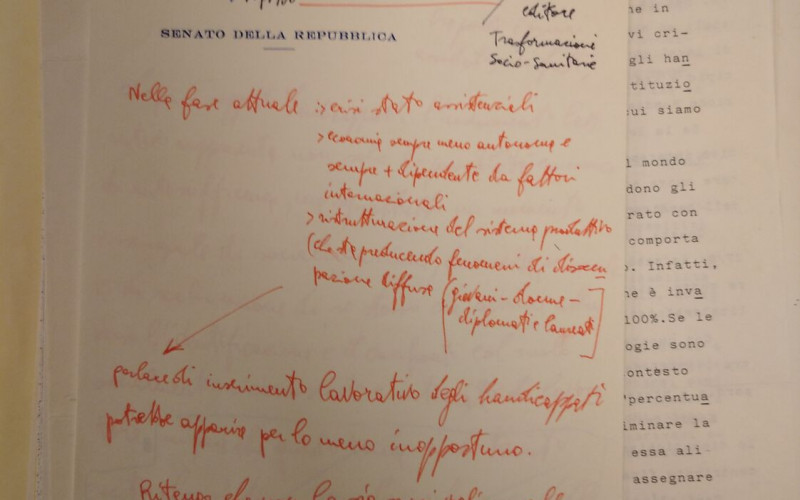 editore
Trasformazioni
Socio-Sanitarie
SENATO DELLA REPUBBLICA
Nella fase attuale :> crisi stato assistenziali
> economie sempre meno autonome e
sempre + dipendente da fattori
internazionali
> ristrutturazione del sistema produttivo
(che sta producendo fenomeni di disoccu
pazione diffusa (giovani - donne -
diplomati e laureati
parlare di inserimento lavorativo degli handicappati
potrebbe apparire per lo meno inopportuno.
ne in
vi cri-
gli han
tituzio
cui siamo
l mondo
dono gli
rato con
comporta
o. Infatti,
ne è inva
100%.Se le
ogie sono
ontesto
"percentua
iminare la
essa ali-
assegnare